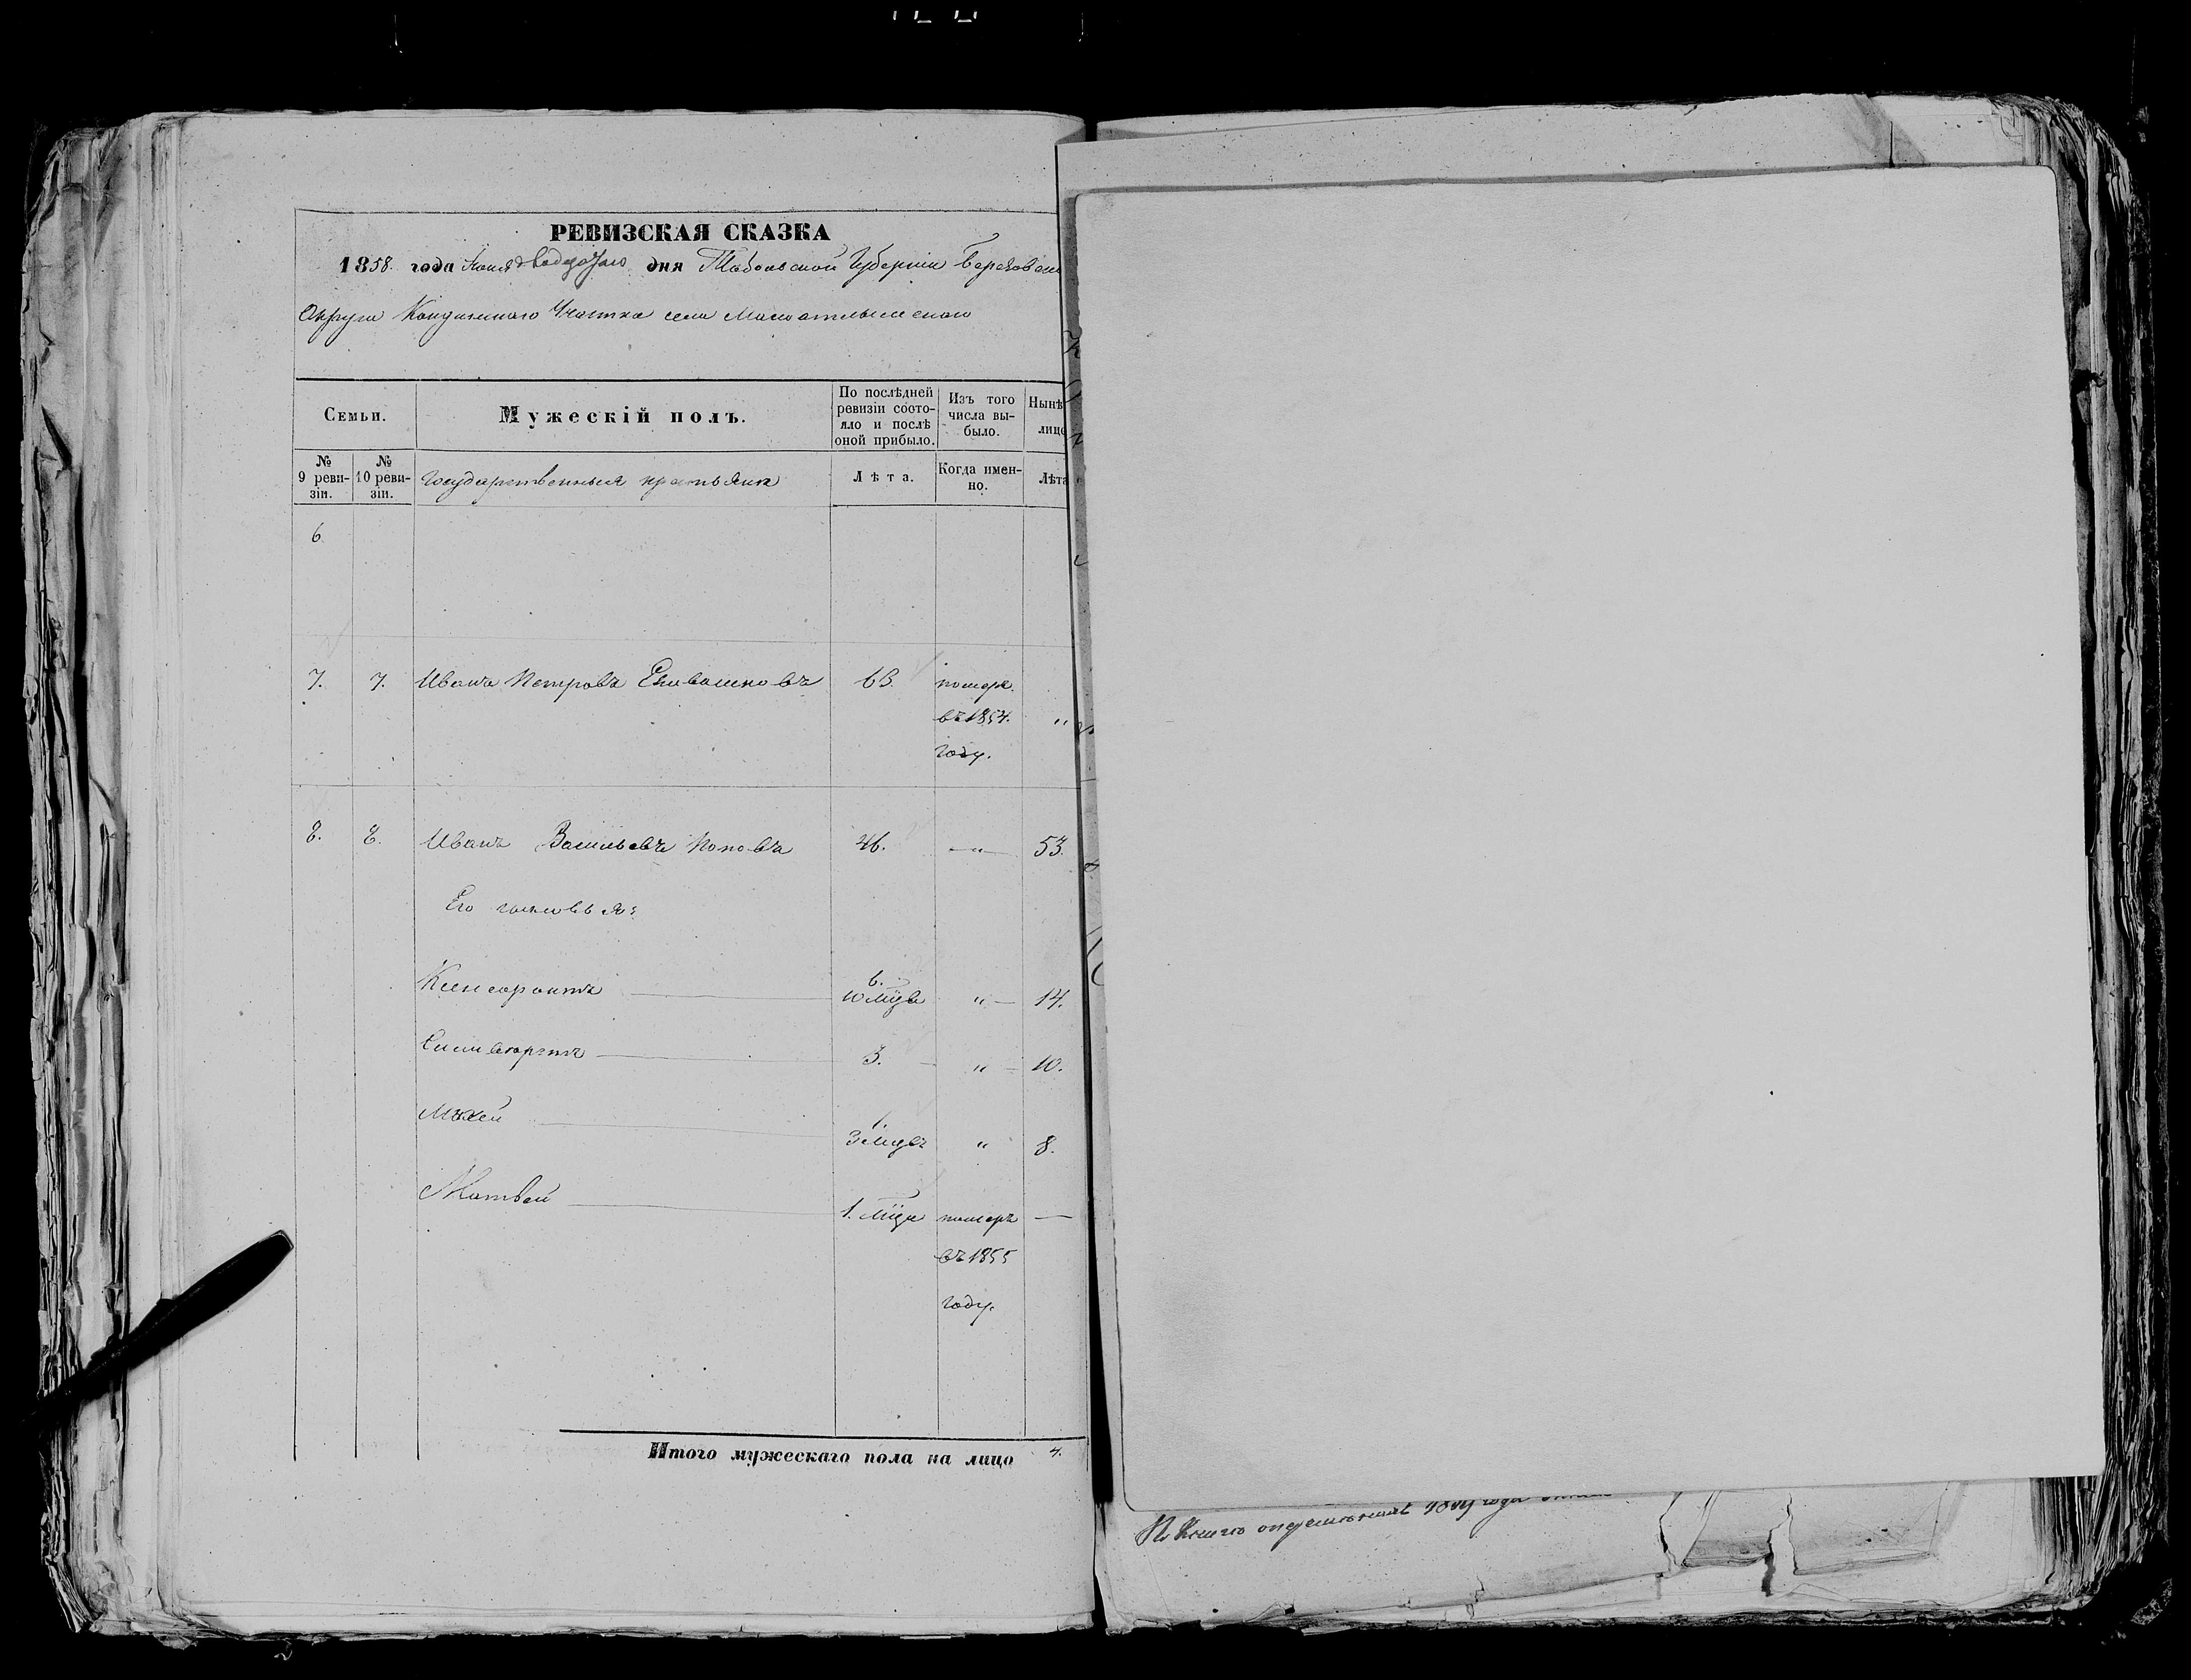 РЕВИЗСКАЯ СКАЗКА
1858 года Іюня двадцатаго дня Тобольской Губерніи Березовск
Округа Кондинскаго Участка села Малоатлымскаго
Семьи.
Мужескій полъ.
По послѣдней ревизіи состояло и послѣ оной прибыло.
Изъ того числа выбыло.
Нынѣ
лицо
№ 9 ревизіи.
№ 10 ревизіи.
Государственныя крестьяна
Лѣта.
Когда именно.
Лѣта
6
7. 7. Иванъ Петровъ 63. помер.
въ 1854. "
году.
8. 8. Иванъ Васильевъ Поповъ 46. — " — 53.
Его сыновья:
Ксенофонтъ 6. 10 мцвъ " — 14.
Селиверстъ 3. — " — 10.
Мокей 1. 3 мцвъ " 8.
Матвей 1. мца померъ —
въ 1855
году.
Итого мужескаго пола на лицо 4.
года